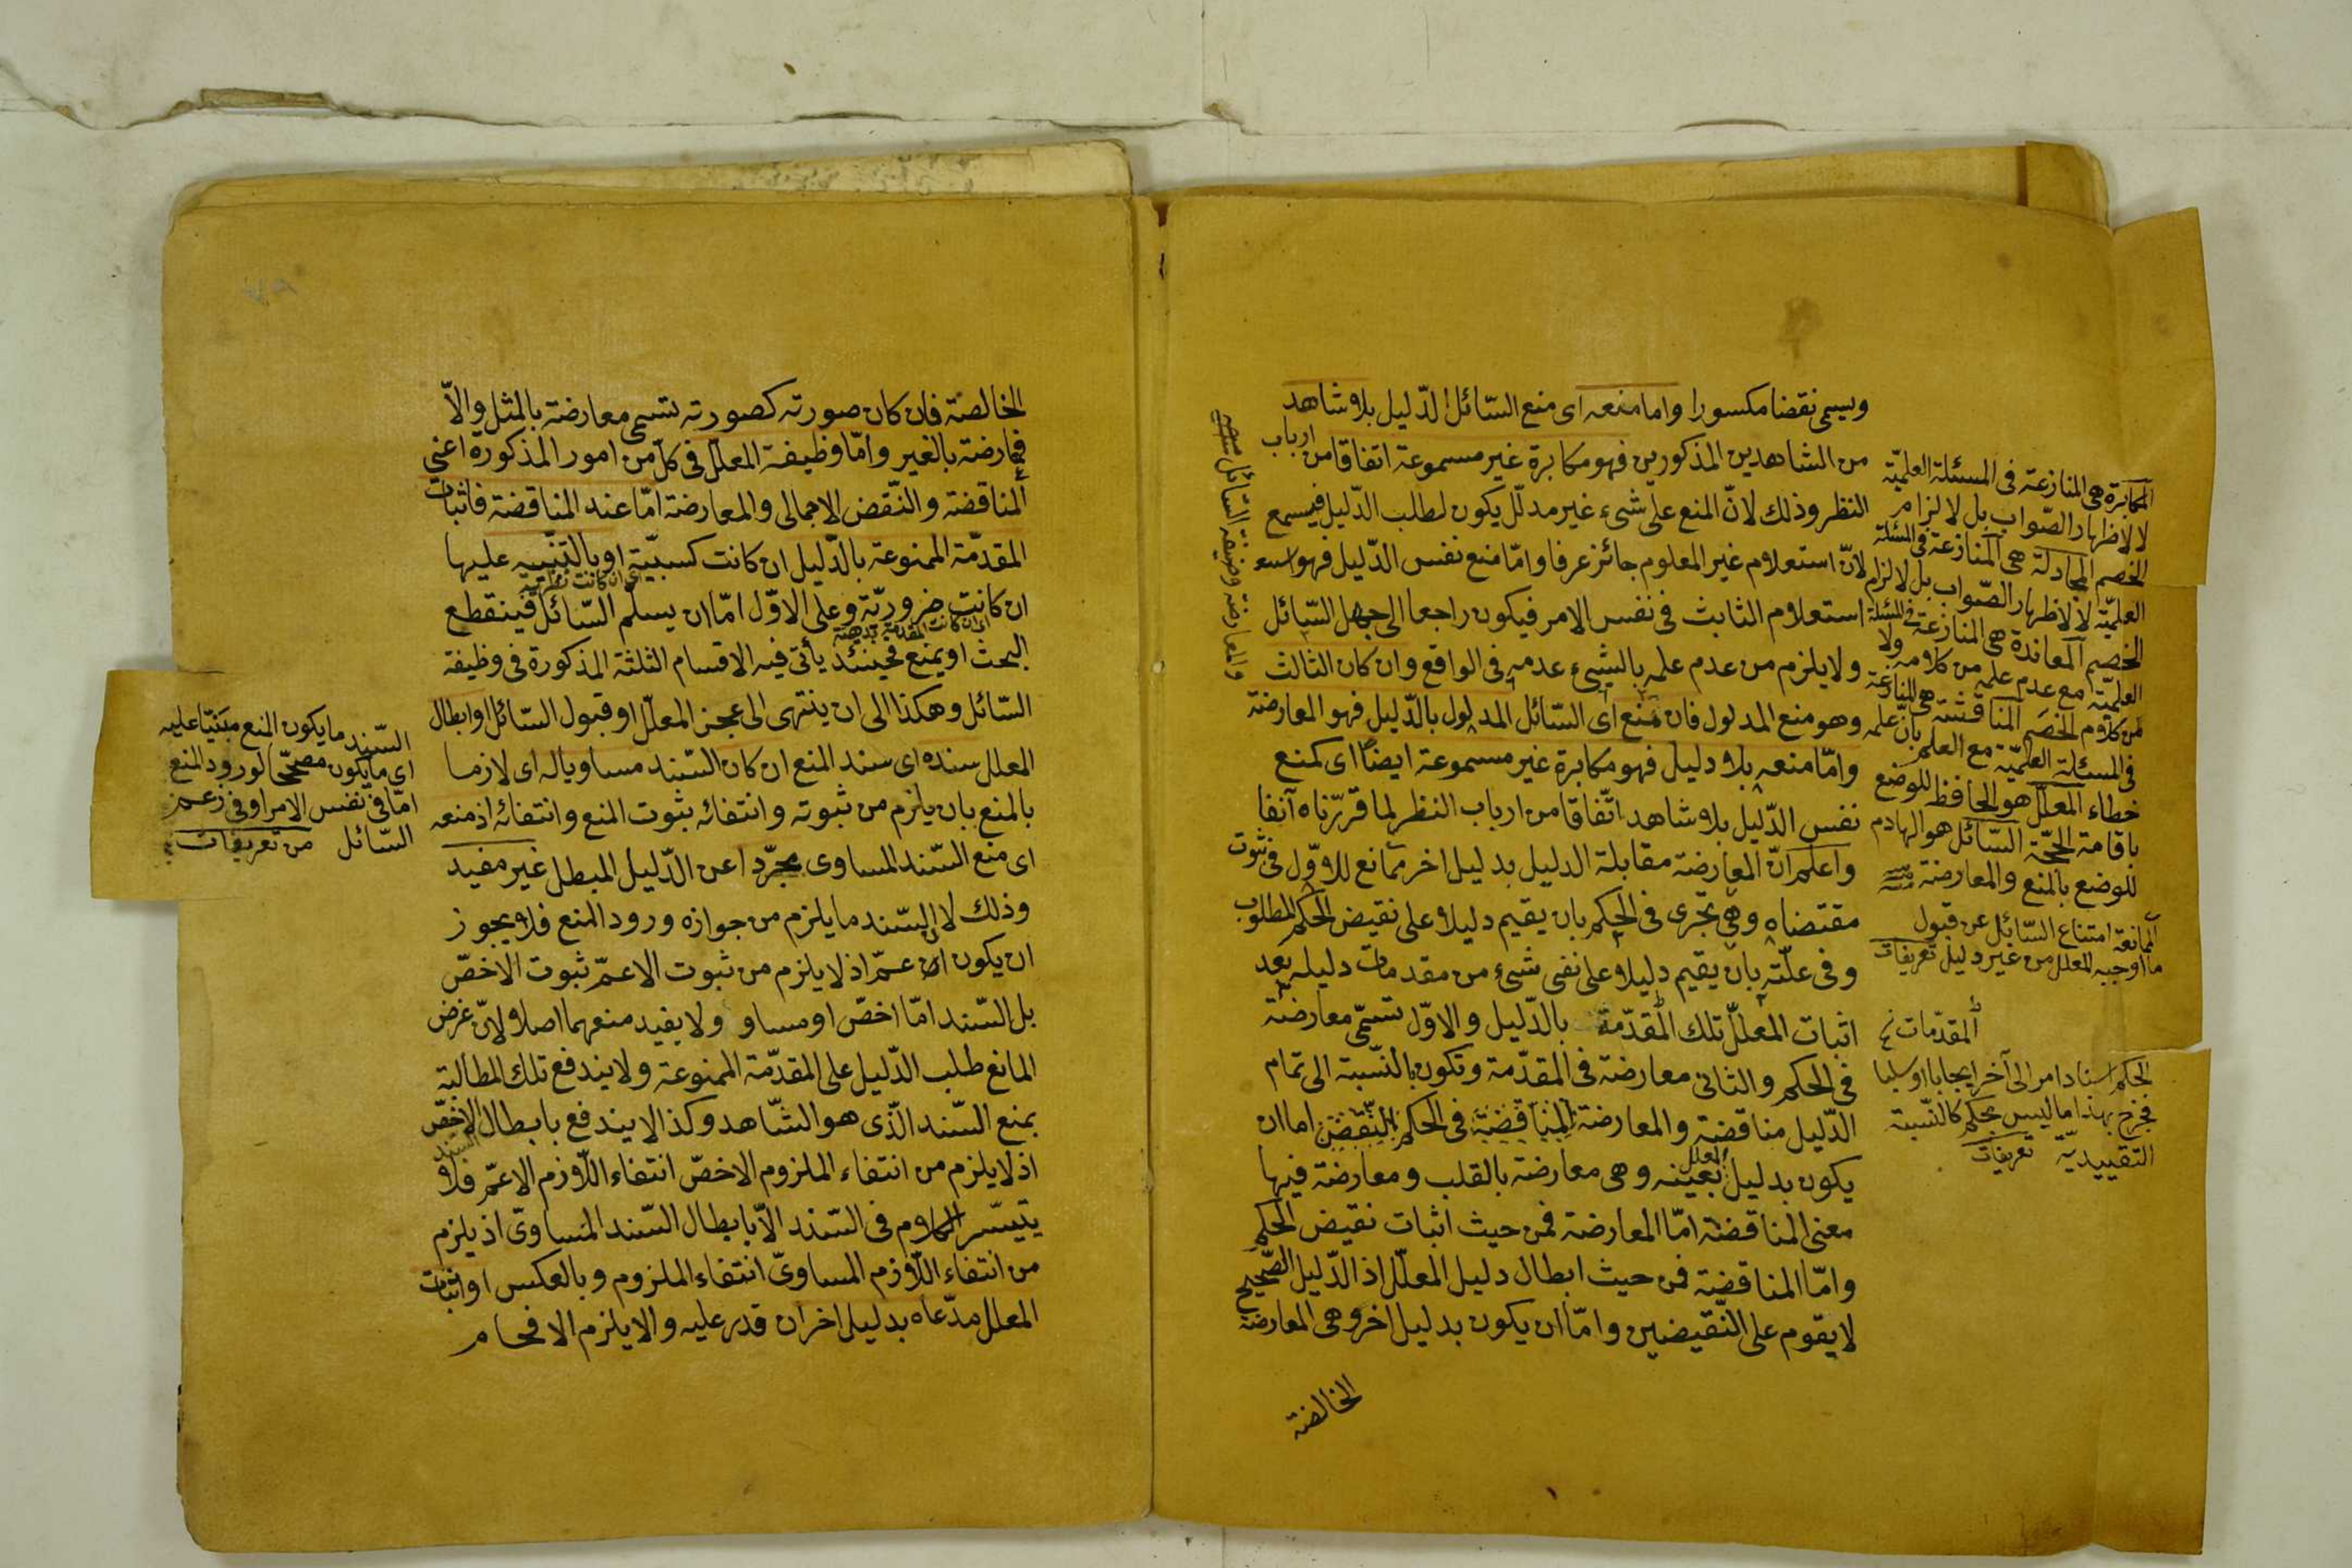 ويسمى نقضا مكسورا واما منعه اى منع السّائل الدّليل بلا شاهد
من الشاهدين المذكورين فهو مكابرة غير مسموعة اتفاقا من ارباب
النظر وذلك لانّ المنع على شىء غير مدلّل يكون لطلب الدّليل فيسمع
لانّ استعلام غير المعلوم جائز عرفا وامّا منع نفس الدّليل فهو
استعلام الثابت فى نفس الامر فيكون راجعا الى جهل السّائل
ولا يلزم من عدم علمه بالشىء عدمه فى الواقع وان كان الثالث
وهو منع المدلول فان منع اى السّائل المدلول بالدّليل فهو المعارضة
وامّا منعه بلا دليل فهو مكابرة غير مسموعة ايضا اى كمنع
نفس الدّليل بلا شاهد اتّفاقا من ارباب النظر لما قرّرناه آنفا
واعلم انّ المعارضة مقابلة الدليل بدليل اخر ممانع للاوّل فى ثبوت
مقتضاه وهى تجرى فى الحكم بان يقيم دليلا على نقيض الحكم المطلوب
وفى علّته بان يقيم دليلا على نفى شىء من مقدمات دليله بعد
اثبات المعلّل تلك المقدّمة بالدّليل والاوّل تسمّى معارضة
فى الحكم والثانى معارضة فى المقدّمة وتكون بالنّسبة الى تمام
الدّليل مناقضة والمعارضة المناقضة فى الحكم النّقض اما ان
يكون بدليل المعلل بعينه وهى معارضة بالقلب ومعارضة فيها
معنى المناقضة امّا المعارضة فمن حيث اثبات نقيض الحكم
وامّا المناقضة فمن حيث ابطال دليل المعلّل اذ الدّليل الصّحيح
لا يقوم على النّقيضين وامّا ان يكون بدليل اخر وهى المعارضة
الخالصة
المكابرة هى المنازعة فى المسئلة العلميّة
لا لاظهار الصّواب بل لالزام
الخصم المجادلة هى المنازعة فى المسئلة
العلميّة لا لاظهار الصّواب بل لالزام
الخصم المعاندة هى المنازعة فى المسئلة
العلميّة مع عدم علمه من كلامه ولا
من كلام الخصم المناقشة هى المنازعة
فى المسئلة العلميّة مع العلم بانّ علمه
خطاء المعلّل هو الحافظ للوضع
باقامة الحجّة السّائل هو الهادم
للوضع بالمنع والمعارضة
الممانعة امتناع السّائل عن قبول
ما اوجبه المعلل من غير دليل تعريفات
المقدّمات
الحكم اسناد امر الى آخر ايجابا او سلبا
فخرج بهذا ما ليس بحكم كالنّسبة
التقييديّة تعريفات
والمعارضة وظيفة السّائل
الخالصة فان كان صورته كصورته تسمى معارضة بالمثل والاّ
فمعارضة بالغير وامّا وظيفة المعلّل فى كل من امور المذكورة اعنى
المناقضة والنّقض الاجمالى والمعارضة امّا عند المناقضة فاثبات
المقدّمة الممنوعة بالدّليل ان كانت كسبيّة او بالتنبيه عليها
اى ان كانت نظرية
ان كانت ضروريّة وعلى الاوّل امّا ان يسلّم السّائل فينقطع
اى ان كانت المقدمة بديهية
البحث او يمنع فحينئذ يأتى فيه الاقسام الثلثة المذكورة فى وظيفة
السّائل وهكذا الى ان ينتهى الى عجز المعلّل او قبول السّائل او ابطال
المعلل سنده اى سند المنع ان كان السّند مساويا له اى لازما
بالمنع بان يلزم من ثبوته وانتفائه ثبوت المنع وانتفائه اذ منعه
اى منع السّند المساوى مجرّدا عن الدّليل المبطل غير مفيد
وذلك لان السّند ما يلزم من جوازه ورود المنع فلا يجوز
ان يكون اعمّ اذ لا يلزم من ثبوت الاعمّ ثبوت الاخصّ
بل السّند امّا اخصّ او مساو ولا يفيد منعهما اصلا ولانّ غرض
المانع طلب الدّليل على المقدّمة الممنوعة ولا يندفع تلك المطالبة
بمنع السّند الّذى هو الشّاهد وكذا لا يندفع بابطال السند الاخصّ
اذ لا يلزم من انتفاء الملزوم الاخصّ انتفاء اللّازم الاعمّ فلا
يتيسّر الكلام فى السّند الاّ بابطال السّند المساوىّ اذ يلزم
من انتفاء اللّازم المساوىّ انتفاء الملزوم وبالعكس او اثبات
المعلل مدّعاه بدليل اخر ان قدر عليه والا يلزم الافحام
السّند ما يكون المنع مبنيّا عليه
اى ما يكون مصحّحا لورود المنع
امّا فى نفس الامر او فى زعم
السّائل من تعريفات